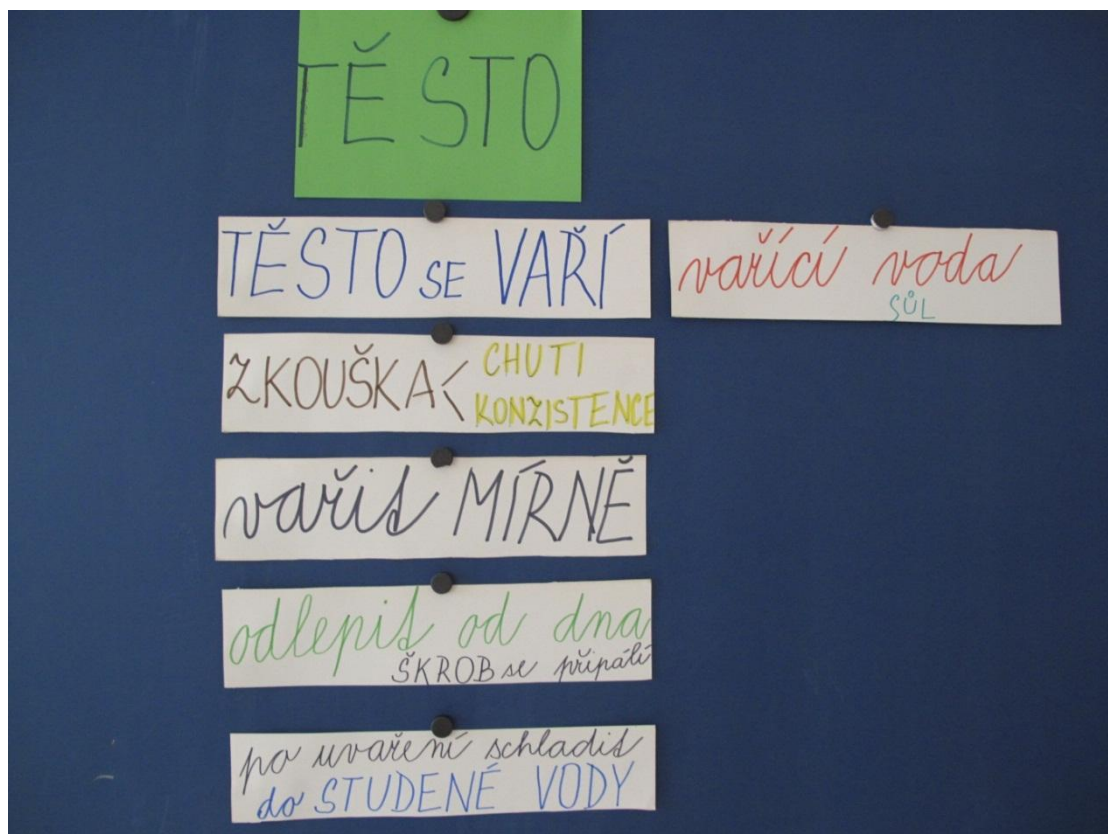 TĚSTO
TĚSTO SE VAŘÍ
vařící voda
SŮL
ZKOUŠKA < CHUTI
KONZISTENCE
vařit MÍRNĚ
odlepit od dna
ŠKROB se připálí
po uvaření schladit
do STUDENÉ VODY